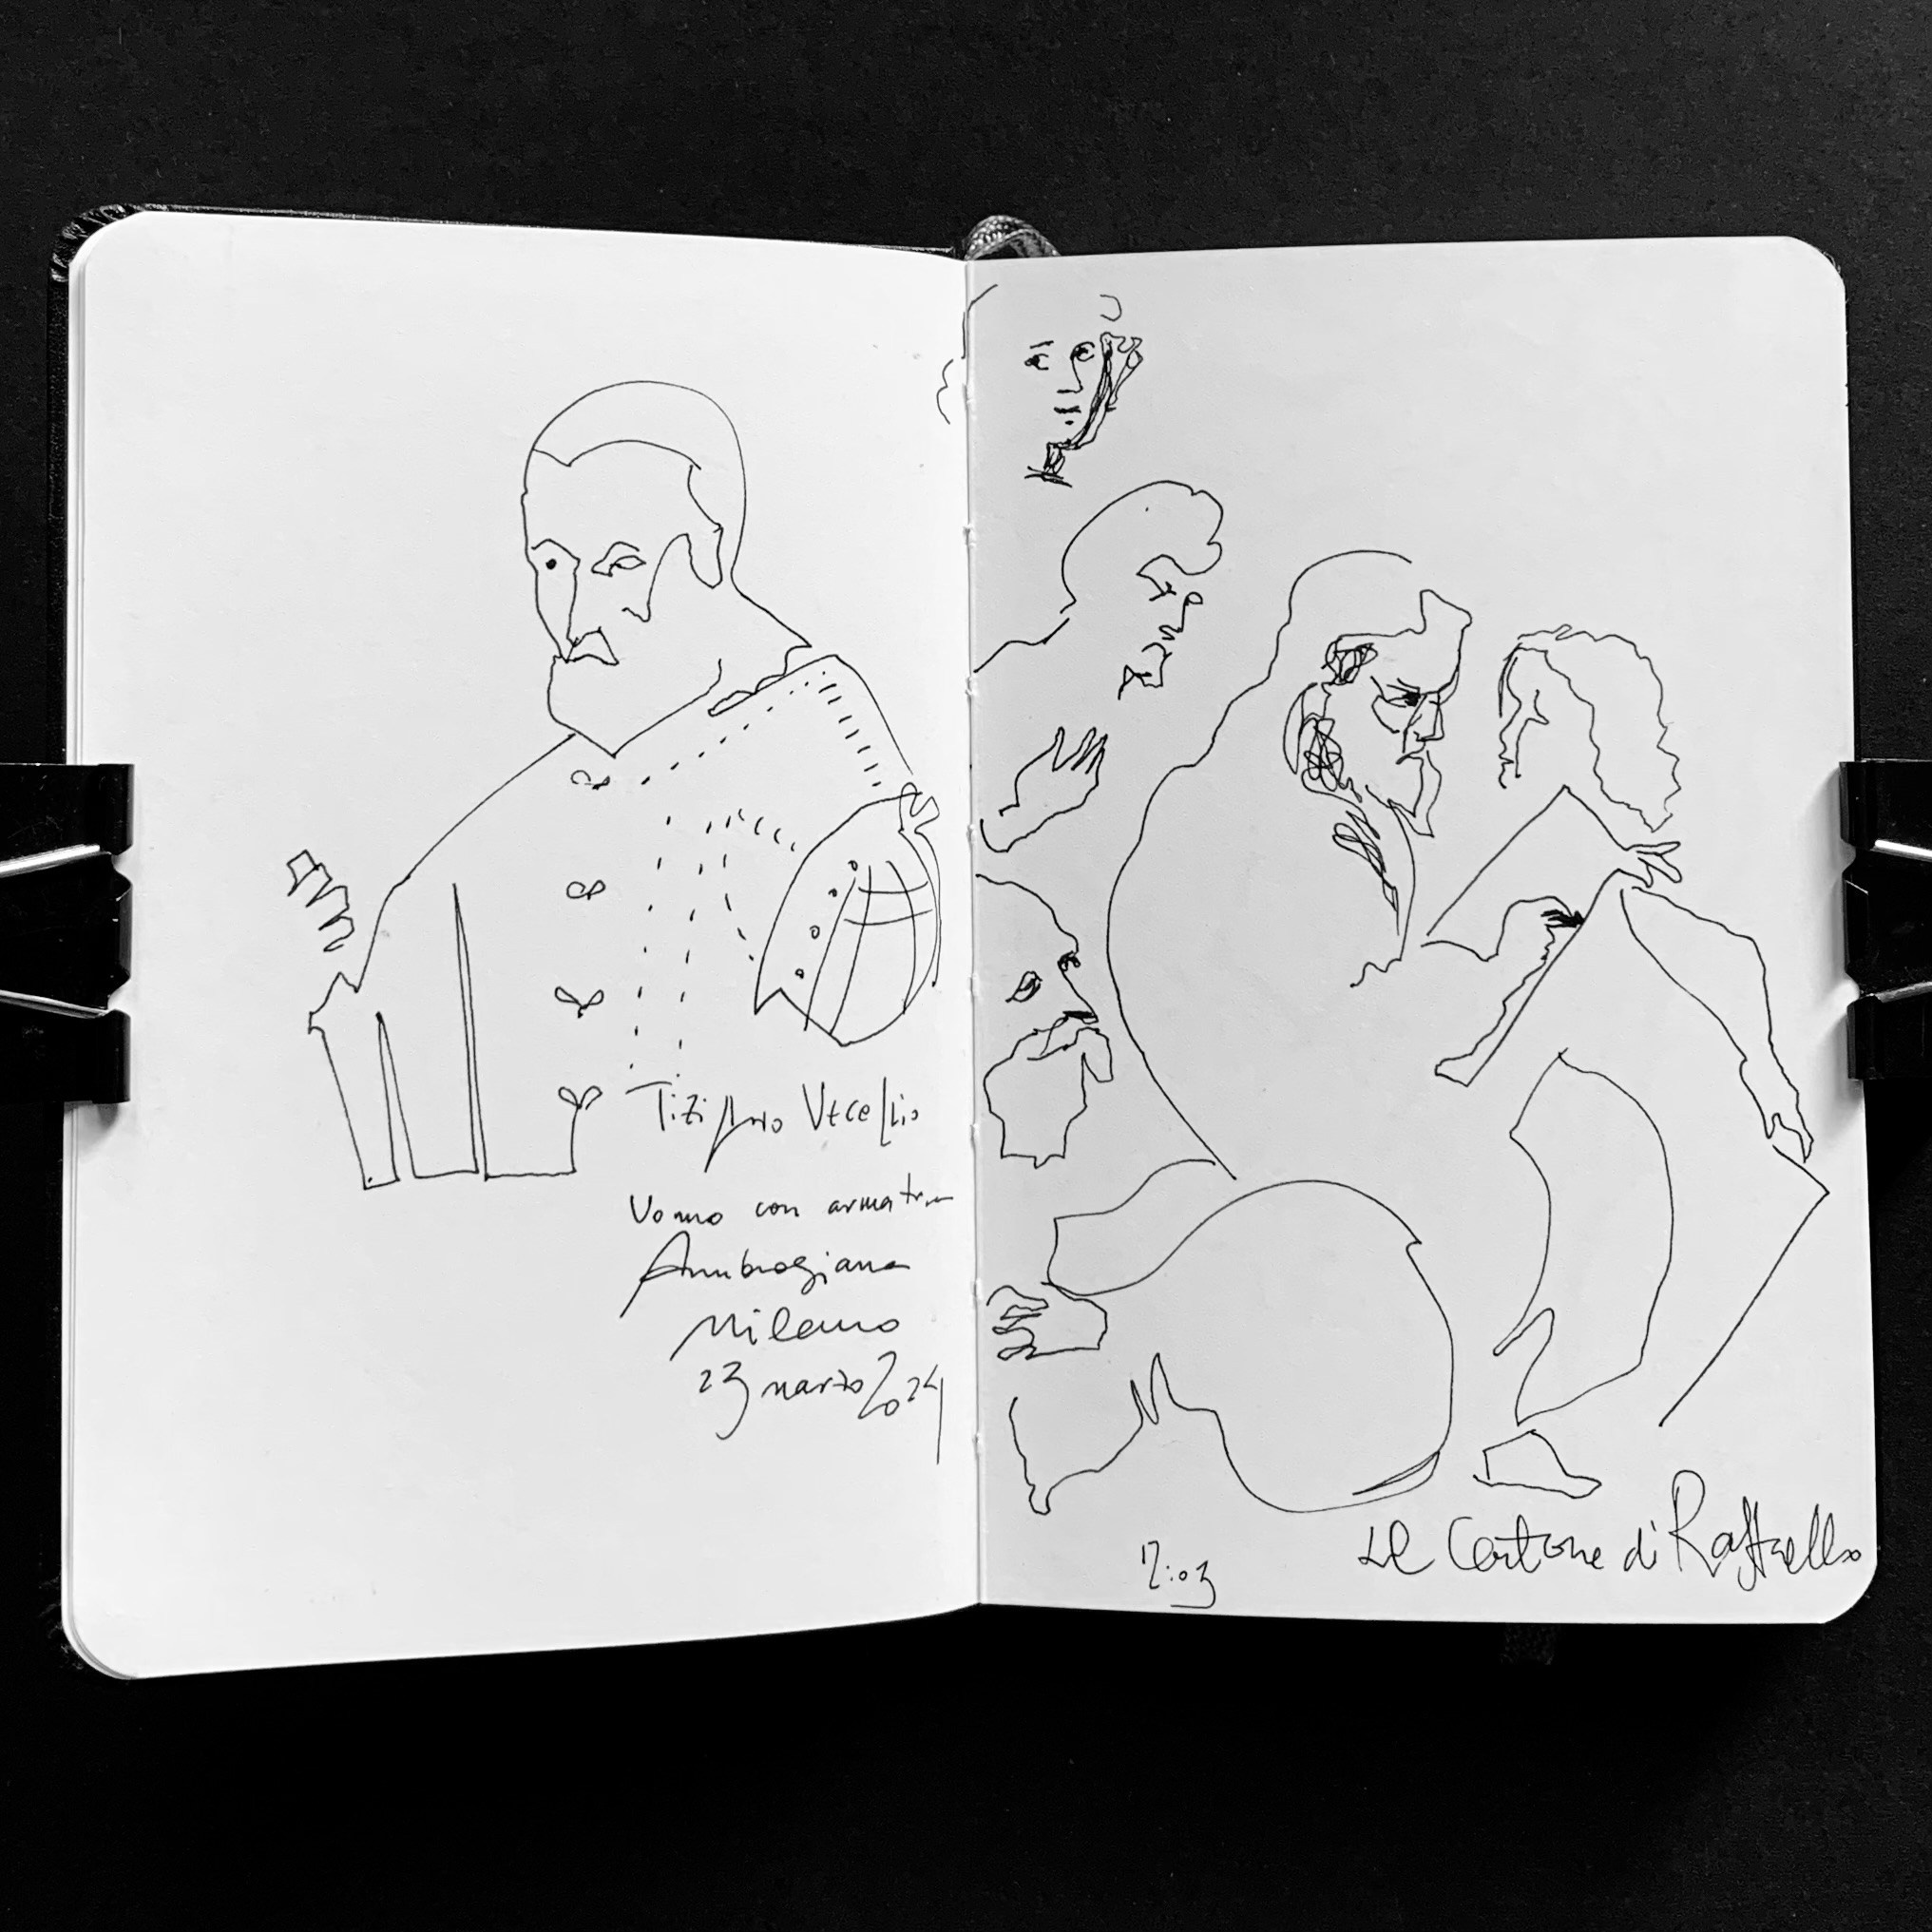 Tiziano Vecellio
Uomo con armatura
Ambrosiana
Milano
23 marzo 2024
12:03
Il Cartone di Raffaello